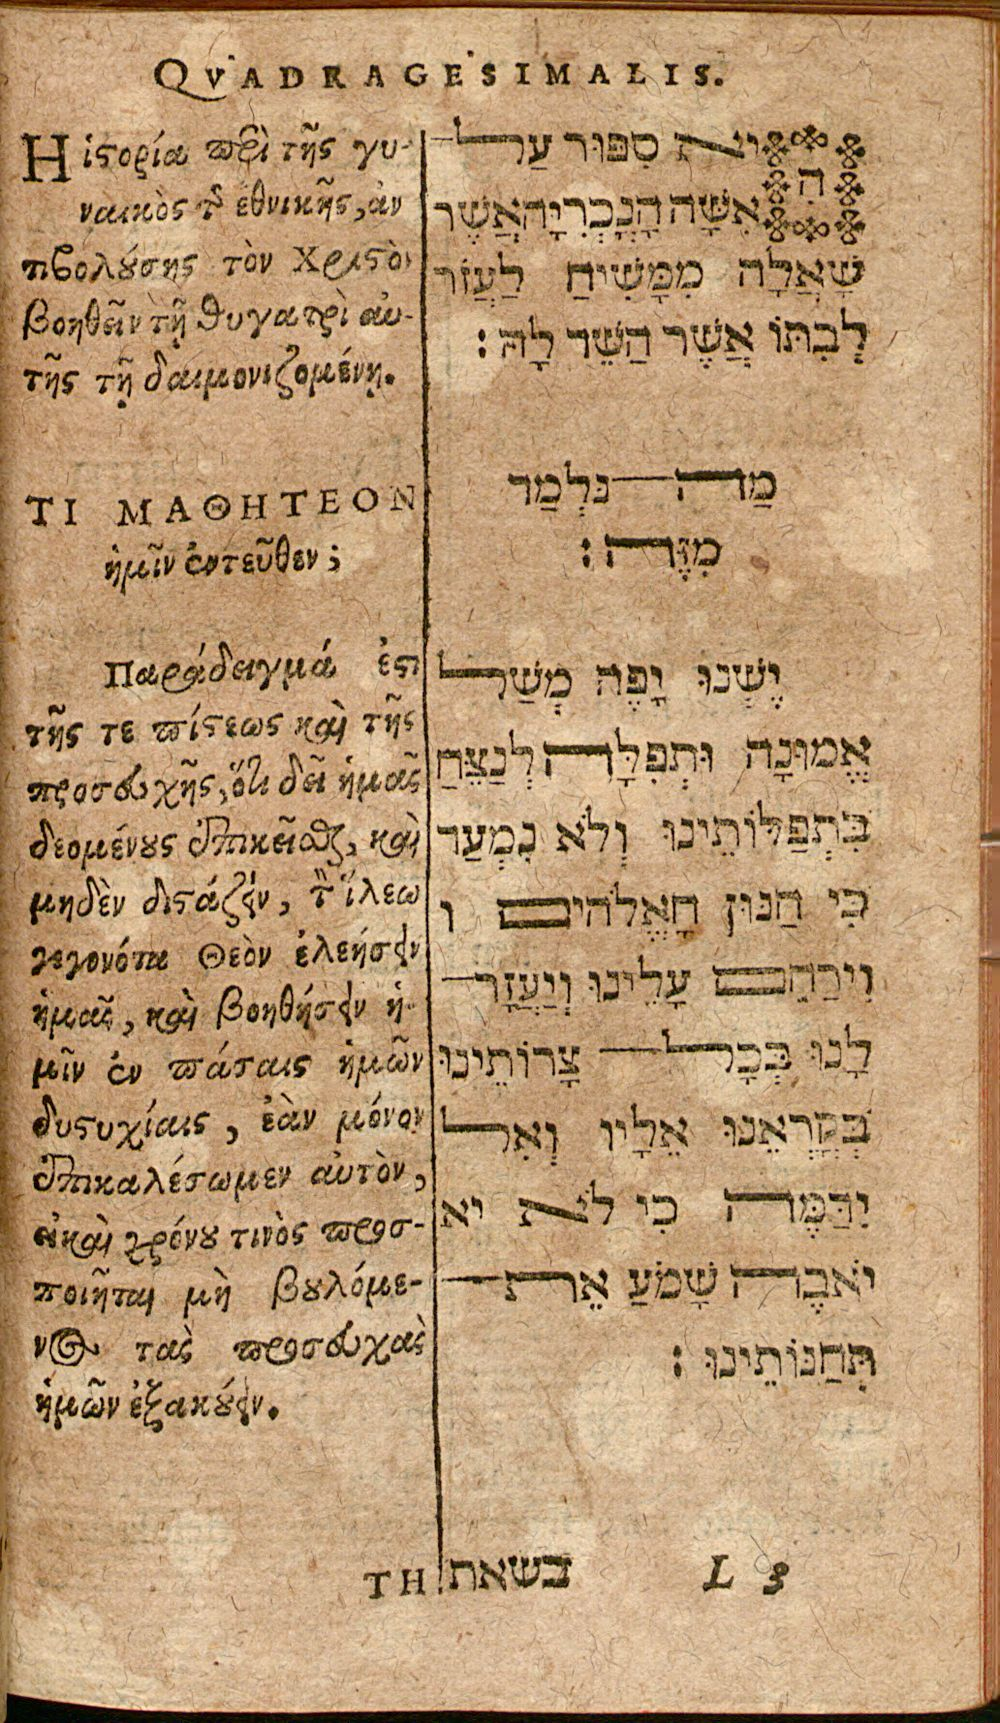 QVADRAGESIMALIS.
Ἡ ἱστορία περὶ τῆς γυ-
ναικὸς τῆς ἐθνικῆς, ἀν
τιβολούσης τὸν Χριστὸν
βοηθεῖν τῇ θυγατρὶ αὐ-
τῆς τῇ δαιμονιζομένῃ.
ΤΙ ΜΑΘΗΤΕΟΝ
ἡμῖν ἐντεῦθεν;
Παράδειγμά ἐστι
τῆς τε πίστεως καὶ τῆς
προσευχῆς, ὅτι δεῖ ἡμᾶς
δεομένους ἐπικεῖσθαι, καὶ
μηδὲν διστάζειν, τὸν ἵλεω
γεγονότα Θεὸν ἐλεήσειν
ἡμᾶς, καὶ βοηθήσειν ἡ-
μῖν ἐν πάσαις ἡμῶν
δυστυχίαις, ἐὰν μόνον
ἐπικαλέσωμεν αὐτὸν,
εἰ καὶ χρόνου τινὸς προσ-
ποιῆται μὴ βουλόμε-
νος τὰς προσευχὰς
ἡμῶν ἐξακούειν.
ΤΗ
הִיא סִפּוּר עַל
אִשָּׁה הַנָּכְרִיָּה אֲשֶׁר
שָׁאֲלָה מִמָּשִׁיחַ לַעֲזֹר
לְבִתּוֹ אֲשֶׁר הַשֵּׁד לָהּ׃
מַה נִּלְמַד
מִזֶּה׃
יֶשְׁנוּ יָפֶה מְשַׁל
אֱמוּנָה וּתְפִלָּה לְנַצֵּחַ
בִּתְפַלּוֹתֵינוּ וְלֹא נִמְעַד
כִּי חַנּוּן הָאֱלֹהִים ו
וִירַחֵם עָלֵינוּ וְיַעֲזָר
לָנוּ בְּכָל צָרוֹתֵינוּ
בְּקָרְאֵנוּ אֵלָיו וְאִל
יְדַמֶּה כִּי לֹא יא
יֹאבֶה שָׁמֹעַ אֵת
תְּחַנּוֹתֵינוּ׃
בשאת
L 3